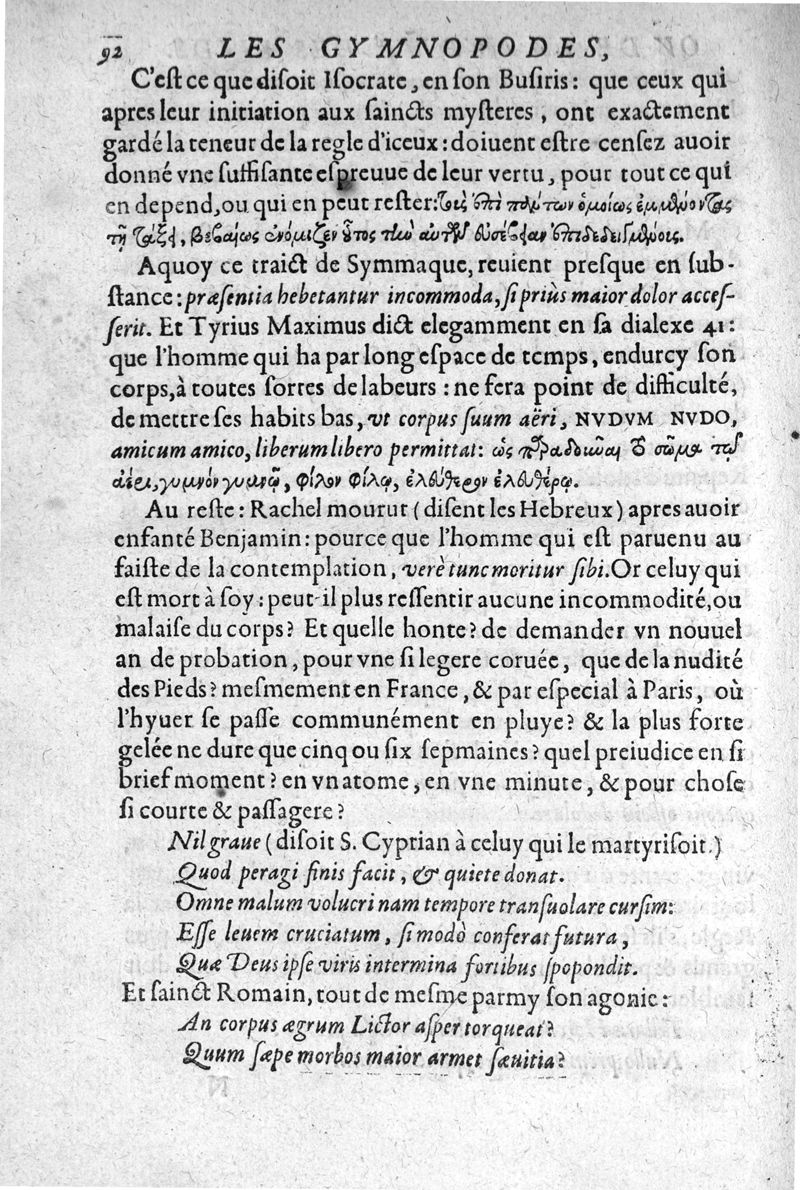 92 LES GYMNOPODES,
C'eſt ce que diſoit Iſocrate, en ſon Buſiris: que ceux qui
apres leur initiation aux ſaincts myſteres, ont exactement
gardé la teneur de la regle d'iceux: doiuent eſtre cenſez auoir
donné vne ſuffiſante eſpreuue de leur vertu, pour tout ce qui
en depend, ou qui en peut reſter: ὁμοίως
βεβαίως
Aquoy ce traict de Symmaque, reuient preſque en ſub-
ſtance: præſentia hebetantur incommoda, ſi priùs maior dolor acceſ-
ſerit. Et Tyrius Maximus dict elegamment en ſa dialexe 41:
que l'homme qui ha par long eſpace de temps, endurcy ſon
corps, à toutes ſortes de labeurs: ne fera point de difficulté,
de mettre ſes habits bas, vt corpus ſuum aëri, NVDVM NVDO,
amicum amico, liberum libero permittat: ὡς σῶμα
ἀέρι, γυμνὸν γυμνῷ, φίλον φίλῳ, ἐλεύθερον ἐλευθέρῳ.
Au reſte: Rachel mourut (diſent les Hebreux) apres auoir
enfanté Benjamin: pource que l'homme qui eſt paruenu au
faiſte de la contemplation, verè tunc moritur ſibi. Or celuy qui
eſt mort à ſoy: peut-il plus reſſentir aucune incommodité, ou
malaiſe du corps? Et quelle honte? de demander vn nouuel
an de probation, pour vne ſi legere coruée, que de la nudité
des Pieds? meſmement en France, & par eſpecial à Paris, où
l'hyuer ſe paſſe communément en pluye? & la plus forte
gelée ne dure que cinq ou ſix ſepmaines? quel preiudice en ſi
brief moment? en vn atome, en vne minute, & pour choſe
ſi courte & paſſagere?
Nil graue (diſoit S. Cyprian à celuy qui le martyriſoit.)
Quod peragi finis facit, & quiete donat.
Omne malum volucri nam tempore tranſuolare curſim:
Eſſe leuem cruciatum, ſi modò conferat futura,
Quæ Deus ipſe viris intermina fortibus ſpopondit.
Et ſainct Romain, tout de meſme parmy ſon agonie:
An corpus ægrum Lictor aſper torqueat?
Quum ſæpe morbos maior armet ſæuitia?